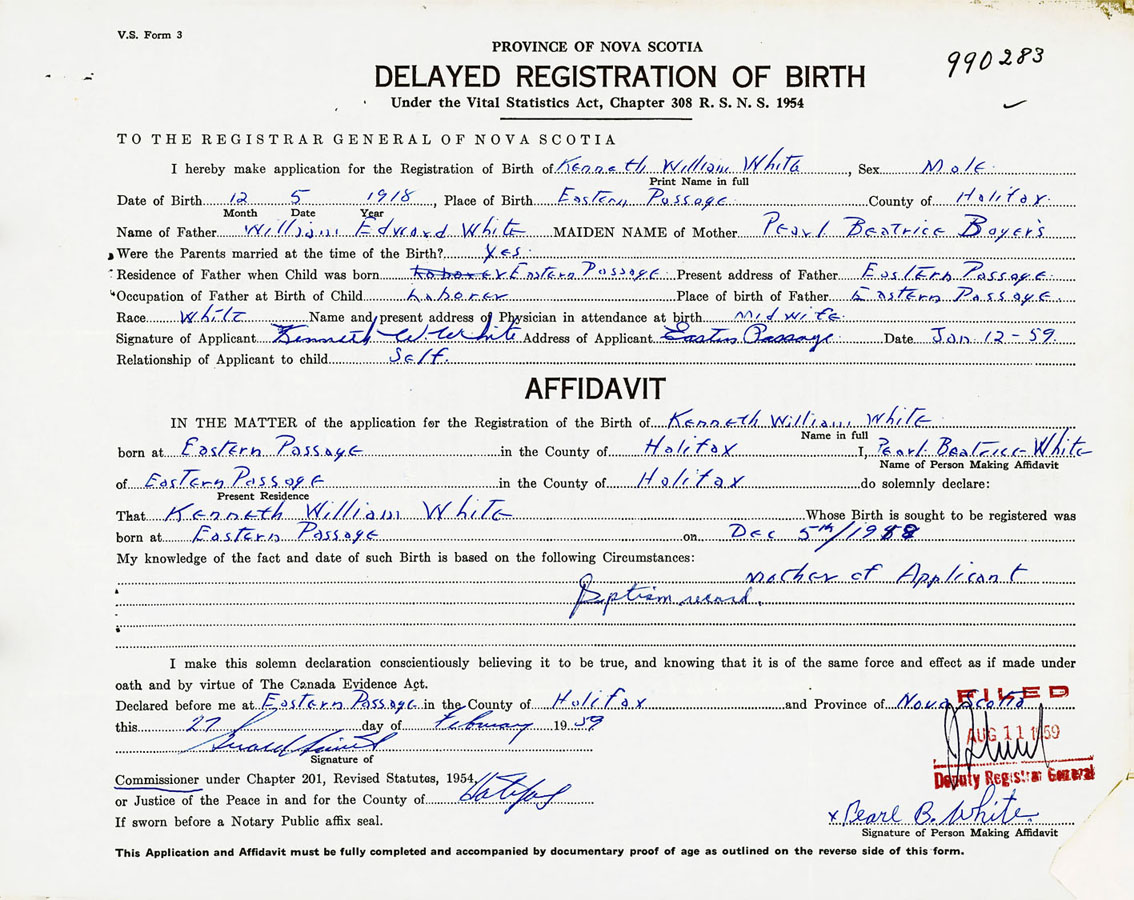 V.S. Form 3
PROVINCE OF NOVA SCOTIA
990283
DELAYED REGISTRATION OF BIRTH
Under the Vital Statistics Act, Chapter 308 R. S. N. S. 1954
TO THE REGISTRAR GENERAL OF NOVA SCOTIA
I hereby make application for the Registration of Birth of Kenneth William White, Sex Male.
Print Name in full
Date of Birth 12 5 1918, Place of Birth Eastern Passage County of Halifax.
Month Date Year
Name of Father William Edward White MAIDEN NAME of Mother Pearl Beatrice Boyers
Were the Parents married at the time of the Birth? Yes.
Residence of Father when Child was born Eastern Passage Present address of Father Eastern Passage.
Occupation of Father at Birth of Child Laborer Place of birth of Father Eastern Passage.
Race White Name and present address of Physician in attendance at birth Midwife.
Signature of Applicant Kenneth W. White Address of Applicant Eastern Passage Date Jan. 12-59.
Relationship of Applicant to child Self.
AFFIDAVIT
IN THE MATTER of the application for the Registration of the Birth of Kenneth William White
Name in full
born at Eastern Passage in the County of Halifax I, Pearl Beatrice White
Name of Person Making Affidavit
of Eastern Passage in the County of Halifax do solemnly declare:
Present Residence
That Kenneth William White Whose Birth is sought to be registered was
born at Eastern Passage on Dec 5th/1918
My knowledge of the fact and date of such Birth is based on the following Circumstances:
Mother of Applicant
Baptism record.
I make this solemn declaration conscientiously believing it to be true, and knowing that it is of the same force and effect as if made under
oath and by virtue of The Canada Evidence Act.
Declared before me at Eastern Passage in the County of Halifax and Province of Nova Scotia
FILED
this 27 day of February 1959
AUG 11 1959
Signature of
Deputy Registrar General
Commissioner under Chapter 201, Revised Statutes, 1954,
or Justice of the Peace in and for the County of Halifax
If sworn before a Notary Public affix seal.
x Pearl B. White
Signature of Person Making Affidavit
This Application and Affidavit must be fully completed and accompanied by documentary proof of age as outlined on the reverse side of this form.